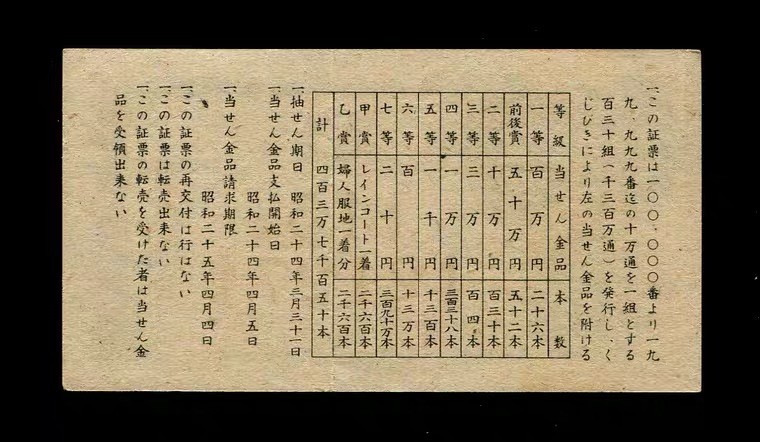 一、この証票は一〇〇、〇〇〇番より一九
九、九九九番迄の十万通を一組とする
百三十組(千三百万通)を発行し、く
じびきにより左の当せん金品を附ける
等級 当せん金品 本数
一等 百万円 二十六本
前後賞 五十万円 五十二本
二等 十万円 百三十本
三等 三万円 百四本
四等 一万円 三百三十八本
五等 一千円 千三百本
六等 百円 十三万本
七等 二十円 三百九十万本
甲賞 レインコート一着 二千六百本
乙賞 婦人服地一着分 二千六百本
計 四百三万七千百五十本
一、抽せん期日 昭和二十四年三月三十一日
一、当せん金品支払開始日
昭和二十四年四月五日
一、当せん金品請求期限
昭和二十五年四月四日
一、この証票の再交付は行はない
一、この証票は転売出来ない
一、この証票の転売を受けた者は当せん金
品を受領出来ない